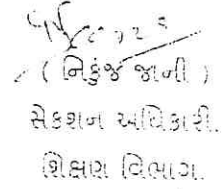 ( નિકુંજ જાની )
સેકશન અધિકારી.
શિક્ષણ વિભાગ.